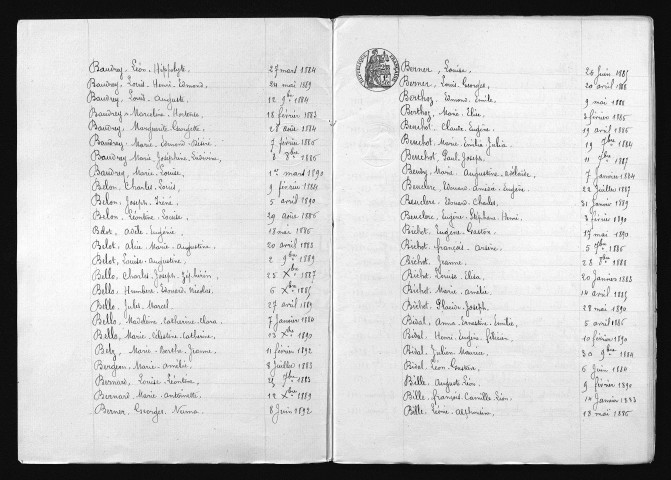 Baudry, Léon, Hippolyte. 27 mars 1884
Baudrey, Louis, Henri, Edmond. 24 mai 1889
Baudrey, Louis, Auguste. 12 9bre 1884
Baudrey, Marceline, Hortense. 18 février 1883
Baudrey, Marguerite, Georgette. 28 août 1884
Baudrey, Marie, Edmond, Désiré. 7 février 1886
Baudrey, Marie, Joséphine, 8bre 1886
Baudrey, Marie, Louise. 1er mars 1890
Belon, Charles, Louis. 9 février 1884
Belon, Joseph, René. 5 avril 1890
Belon, Léontine, Louise. 29 août 1886
Belot, Adèle, Eugénie. 18 mai 1886
Belot, Alice, Marie, Augustine. 20 avril 1883
Belot, Louise, Augustine. 2 9bre 1889
Bello, Charles, Joseph, Zéphirin. 25 Xbre 1887
Bello, Humbert, Edouard, Nicolas. 6 Xbre 1885
Bello, Jules, Marcel. 27 avril 1889
Bello, Madeleine, Catherine, Clara. 7 Janvier 1884
Bello, Marie, Célestine, Catherine. 13 Xbre 1890
Belz, Marie, Berthe, Jeanne. 11 février 1892
Bergeon, Marie, Amélie. 8 Juillet 1883
Bernard, Louise, Léontine. 1883
Bernard, Marie, Antoinette. 12 Xbre 1889
Berner, Georges, Numa. 8 Juin 1892
Berner, Louise. 26 Juin 1885
Berner, Louis, Georges. 20 avril 1888
Berthoz, Edmond, Emile. 9 mai 1886
Berthoz, Marie, Elise. 3 février 1886
Beuchot, Claude, Eugène. 19 avril 1886
Beuchot, Marie, Emilie, Julia. 19 7bre 1884
Beuchot, Paul, Joseph. 11 9bre 1887
Beudy, Marie, Augustine, Adélaïde. 7 Janvier 1884
Beuclere, Edouard, Amédée, Eugène. 22 Juillet 1887
Beuclere, Edouard, Charles. 31 Janvier 1889
Beuclere, Eugène, Stéphane, Henri. 3 février 1890
Bichot, Eugène, Gaston. 17 mai 1890
Bichot, françois, Arsène. 5 7bre 1886
Bichot, Jeanne. 28 8bre 1888
Bichot, Louise, Elisa. 20 Janvier 1883
Bichot, Marie, Amélie. 14 avril 1885
Bichot, Placide, Joseph. 28 mai 1890
Bidal, Anna, Ernestine, Emilie. 5 avril 1886
Bidal, Henri, Eugène, félicien. 10 février 1890
Bidal, Julien, Maurice. 30 9bre 1884
Bidal, Léon, Gustave. 6 Juin 1884
Bille, Auguste, Léon. 9 février 1890
Bille, françois, Camille, Léon. 14 Janvier 1883
Bille, Léonie, Alphonsine. 13 mai 1886